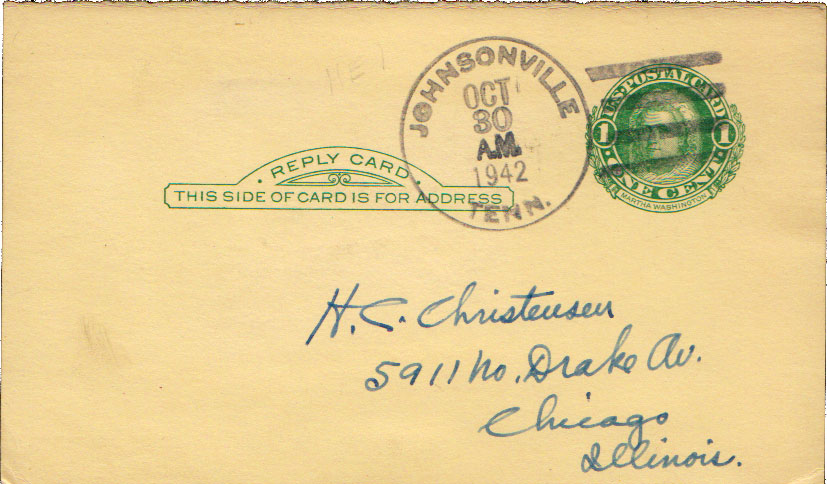 JOHNSONVILLE
OCT
30
A.M.
1942
TENN.
U.S. POSTAL CARD
1 1
ONE CENT
MARTHA WASHINGTON
REPLY CARD
THIS SIDE OF CARD IS FOR ADDRESS
H. C. Christensen
5911 No. Drake Av.
Chicago
Illinois.